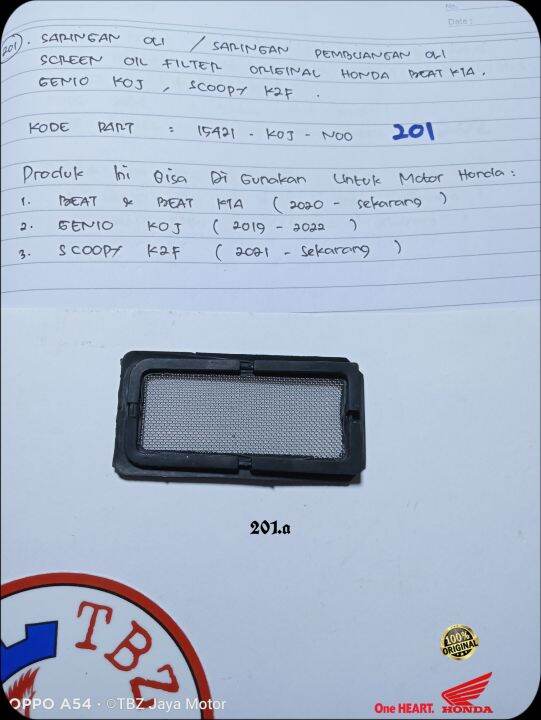 No.
Date:
201. SARINGAN OLI / SARINGAN PEMBUANGAN OLI
SCREEN OIL FILTER ORIGINAL HONDA BEAT K1A.
GENIO K0J, SCOOPY K2F.
KODE PART : 15421 - K0J - N00 201
Produk Ini Bisa Di Gunakan Untuk Motor Honda:
1. BEAT & BEAT K1A (2020 - sekarang)
2. GENIO K0J (2019 - 2022)
3. SCOOPY K2F (2021 - sekarang)
201.a
TBZ
100%
ORIGINAL
OPPO A54 · ©TBZ Jaya Motor
One HEART. HONDA